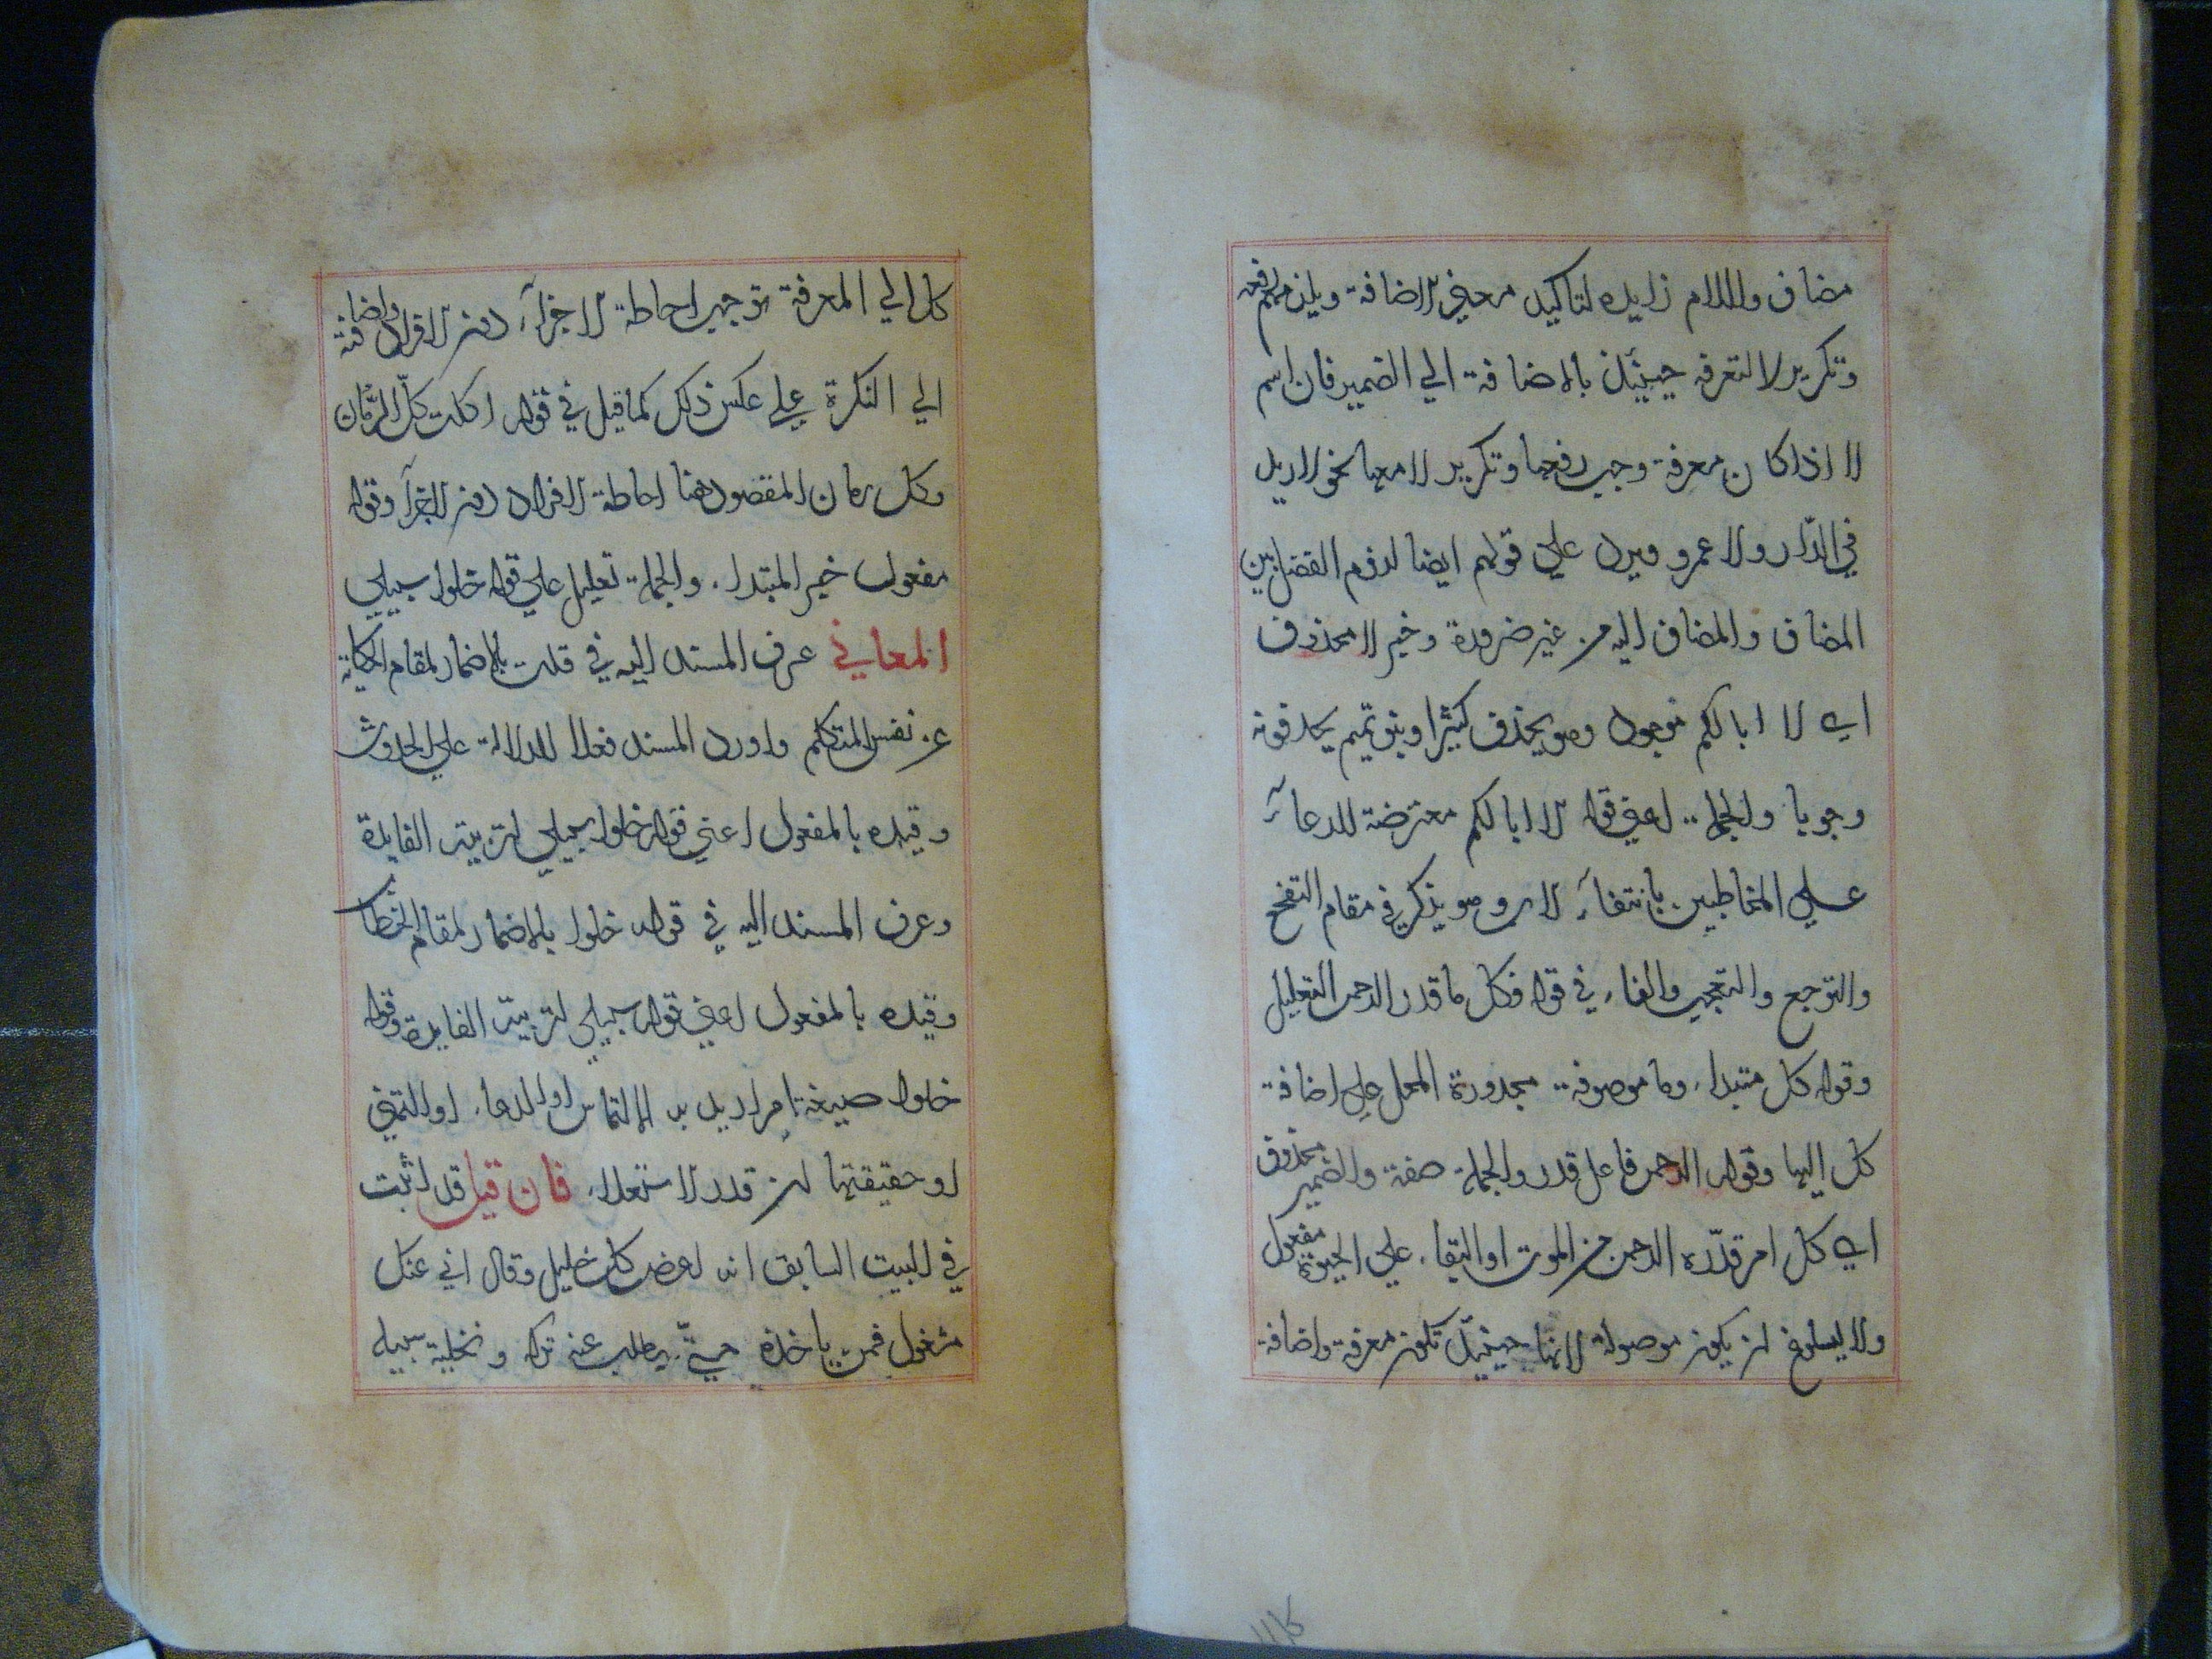 مضاف واللام زايده لتاكيد معنى الاضافة ويلزمهم رفعه
وتكرير لا لتعرفه حينئذ بالاضافة الي الضمير فان اسم
لا اذا كان معرفة وجب رفعها وتكرير لا معها نحو لا زيد
في الدّار ولا عمرو ويرد علي قولهم ايضا لزوم الفصل بين
المضاف والمضاف اليه من غير ضرورة وخبر لا محذوف
اي لا ابا لكم موجود وهو يحذف كثيرا وبنو تميم يحذفونه
وجوبا والجملة اعني قوله لا ابا لكم معترضة للدعآء
علي المخاطبين بانتفآء الاب وهو يذكر في مقام التفجع
والتوجع والتعجب والفاء في قوله فكل ما قدر الرحمن للتعليل
وقوله كل مبتداء وما موصوفة مجرورة المحل علي اضافة
كل اليها وقوله الرحمن فاعل قدر والجملة صفة والضمير محذوف
اي كل امر قدّره الرحمن من الموت او البقاء علي الحيوة مفعول
ولا يسوغ ان يكون موصولة لانها حينئذ تكون معرفة واضافة
كل الي المعرفة توجب احاطة الاجزآء دون الافراد واضافة
الي النكرة علي عكس ذلك كما قيل في قوله اكلت كلّ الرّمان
وكل رمان المقصود هنا احاطة الافراد دون الاجزآء وقوله
مفعول خبر المبتداء والجملة تعليل علي قوله خلوا سبيلي
المعاني عرف المسند اليه في قلت بالاضمار لمقام الحكاية
عن نفس المتكلم واورد المسند فعلا للدلالة علي الحدوث
وقيده بالمفعول اعني قوله خلوا سبيلي لتربية الفايدة
وعرف المسند اليه في قوله خلوا بالاضمار لمقام الخطاب
وقيده بالمفعول اعني قوله سبيلي لتربية الفايدة وقوله
خلوا صيغة امر اريد به الالتماس او الدعاء او التمني
او حقيقتها ان قدر الاستعلاء فان قيل قد اثبت
في البيت السابق انه اعرض كل خليل وقال اني عنك
مشغول فمن ياخذه حتّي يطلب عنه تركه وتخلية سبيله